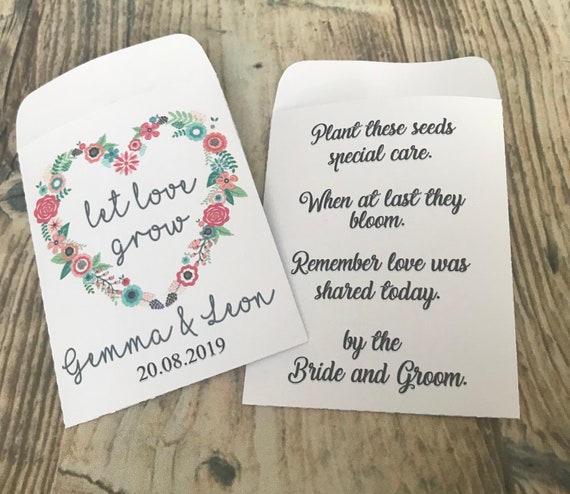 let love
grow
Gemma & Leon
20.08.2019
Plant these seeds
special care.
When at last they
bloom.
Remember love was
shared today.
by the
Bride and Groom.